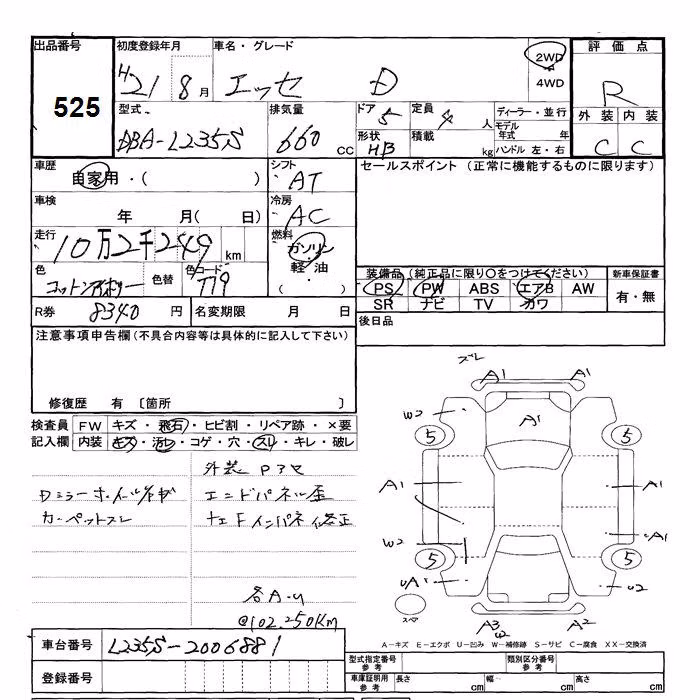 出品番号 初度登録年月 車名・グレード 評価点
525
H21年 8月 エッセ D 2WD
4WD
R
型式 排気量 ドア 定員 ディーラー・並行 外装 内装
DBA-L235S 660 CC 5 4人 モデル年式 年
形状 積載 kg ハンドル 左・右
HB C C
車歴 シフト セールスポイント (正常に機能するものに限ります)
自家用・( ) AT
車検 冷房
年 月( 日) AC
走行 燃料
10万2千249 km ガソリン
軽油
( )
色 色替 色コード 装備品 (純正品に限り○をつけてください) 新車保証書
コットンアイボリー T19 PS PW ABS エアB AW 有・無
SR ナビ TV カワ
R券 8340 円 名変期限 月 日 後日品
注意事項申告欄(不具合内容等は具体的に記入して下さい)
修復歴 有 〔箇所
検査員 FW キズ・飛石・ヒビ割・リペア跡・×要
記入欄 内装 キズ・汚レ・コゲ・穴・スレ・キレ・破レ
外装
エンドパネル歪
カーペットスレ
@102,250KM
車台番号 L235S-2006881
登録番号
ズレ
A1 A1
W2 A1
5 5
A1 A1
W2 A1
5 5
UA1 U2
スペア
A3 A2
W2
A-キズ E-エクボ U-凹み W-補修跡 S-サビ C-腐食 XX-交換済
型式指定番号 参考 類別区分番号 参考
車庫証明用 参考 長さ cm 幅 cm 高さ cm